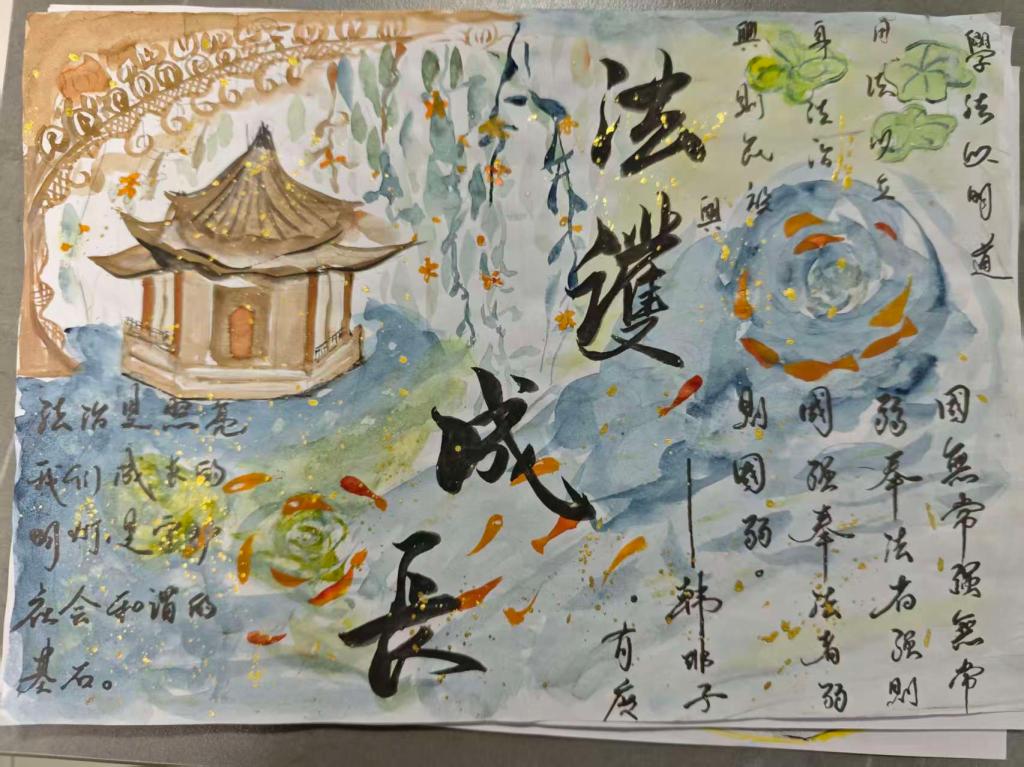 法護成長
學法以明道
用法以立
身法治
興則民族
興
國無常强無常
弱奉法者强則
國强奉法者弱
則國弱。
——韩非子
·有度
法治是照亮
我们成长的
明灯,是守护
社会和谐的
基石。